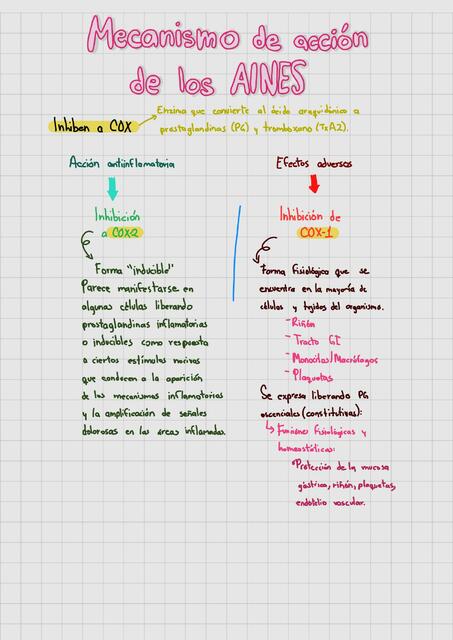 Mecanismo de acción
de los AINES
Inhiben a COX
Enzima que convierte al ácido araquidónico a
prostaglandinas (PG) y tromboxano (TxA2).
Acción antiinflamatoria
Inhibición
a COX-2
Forma "inducible"
Parece manifestarse en
algunas células liberando
prostaglandinas inflamatorias
o inducibles como respuesta
a ciertos estímulos nocivos
que conducen a la aparición
de los mecanismos inflamatorios
y la amplificación de señales
dolorosas en las áreas inflamadas.
Efectos adversos
Inhibición de
COX-1
Forma fisiológica que se
encuentra en la mayoría de
células y tejidos del organismo.
- Riñón
- Tracto GI
- Monocitos/Macrófagos
- Plaquetas
Se expresa liberando PG
esenciales (constitutivas):
↳ Funciones fisiológicas y
homeostáticas:
*Protección de la mucosa
gástrica, riñón, plaquetas,
endotelio vascular.